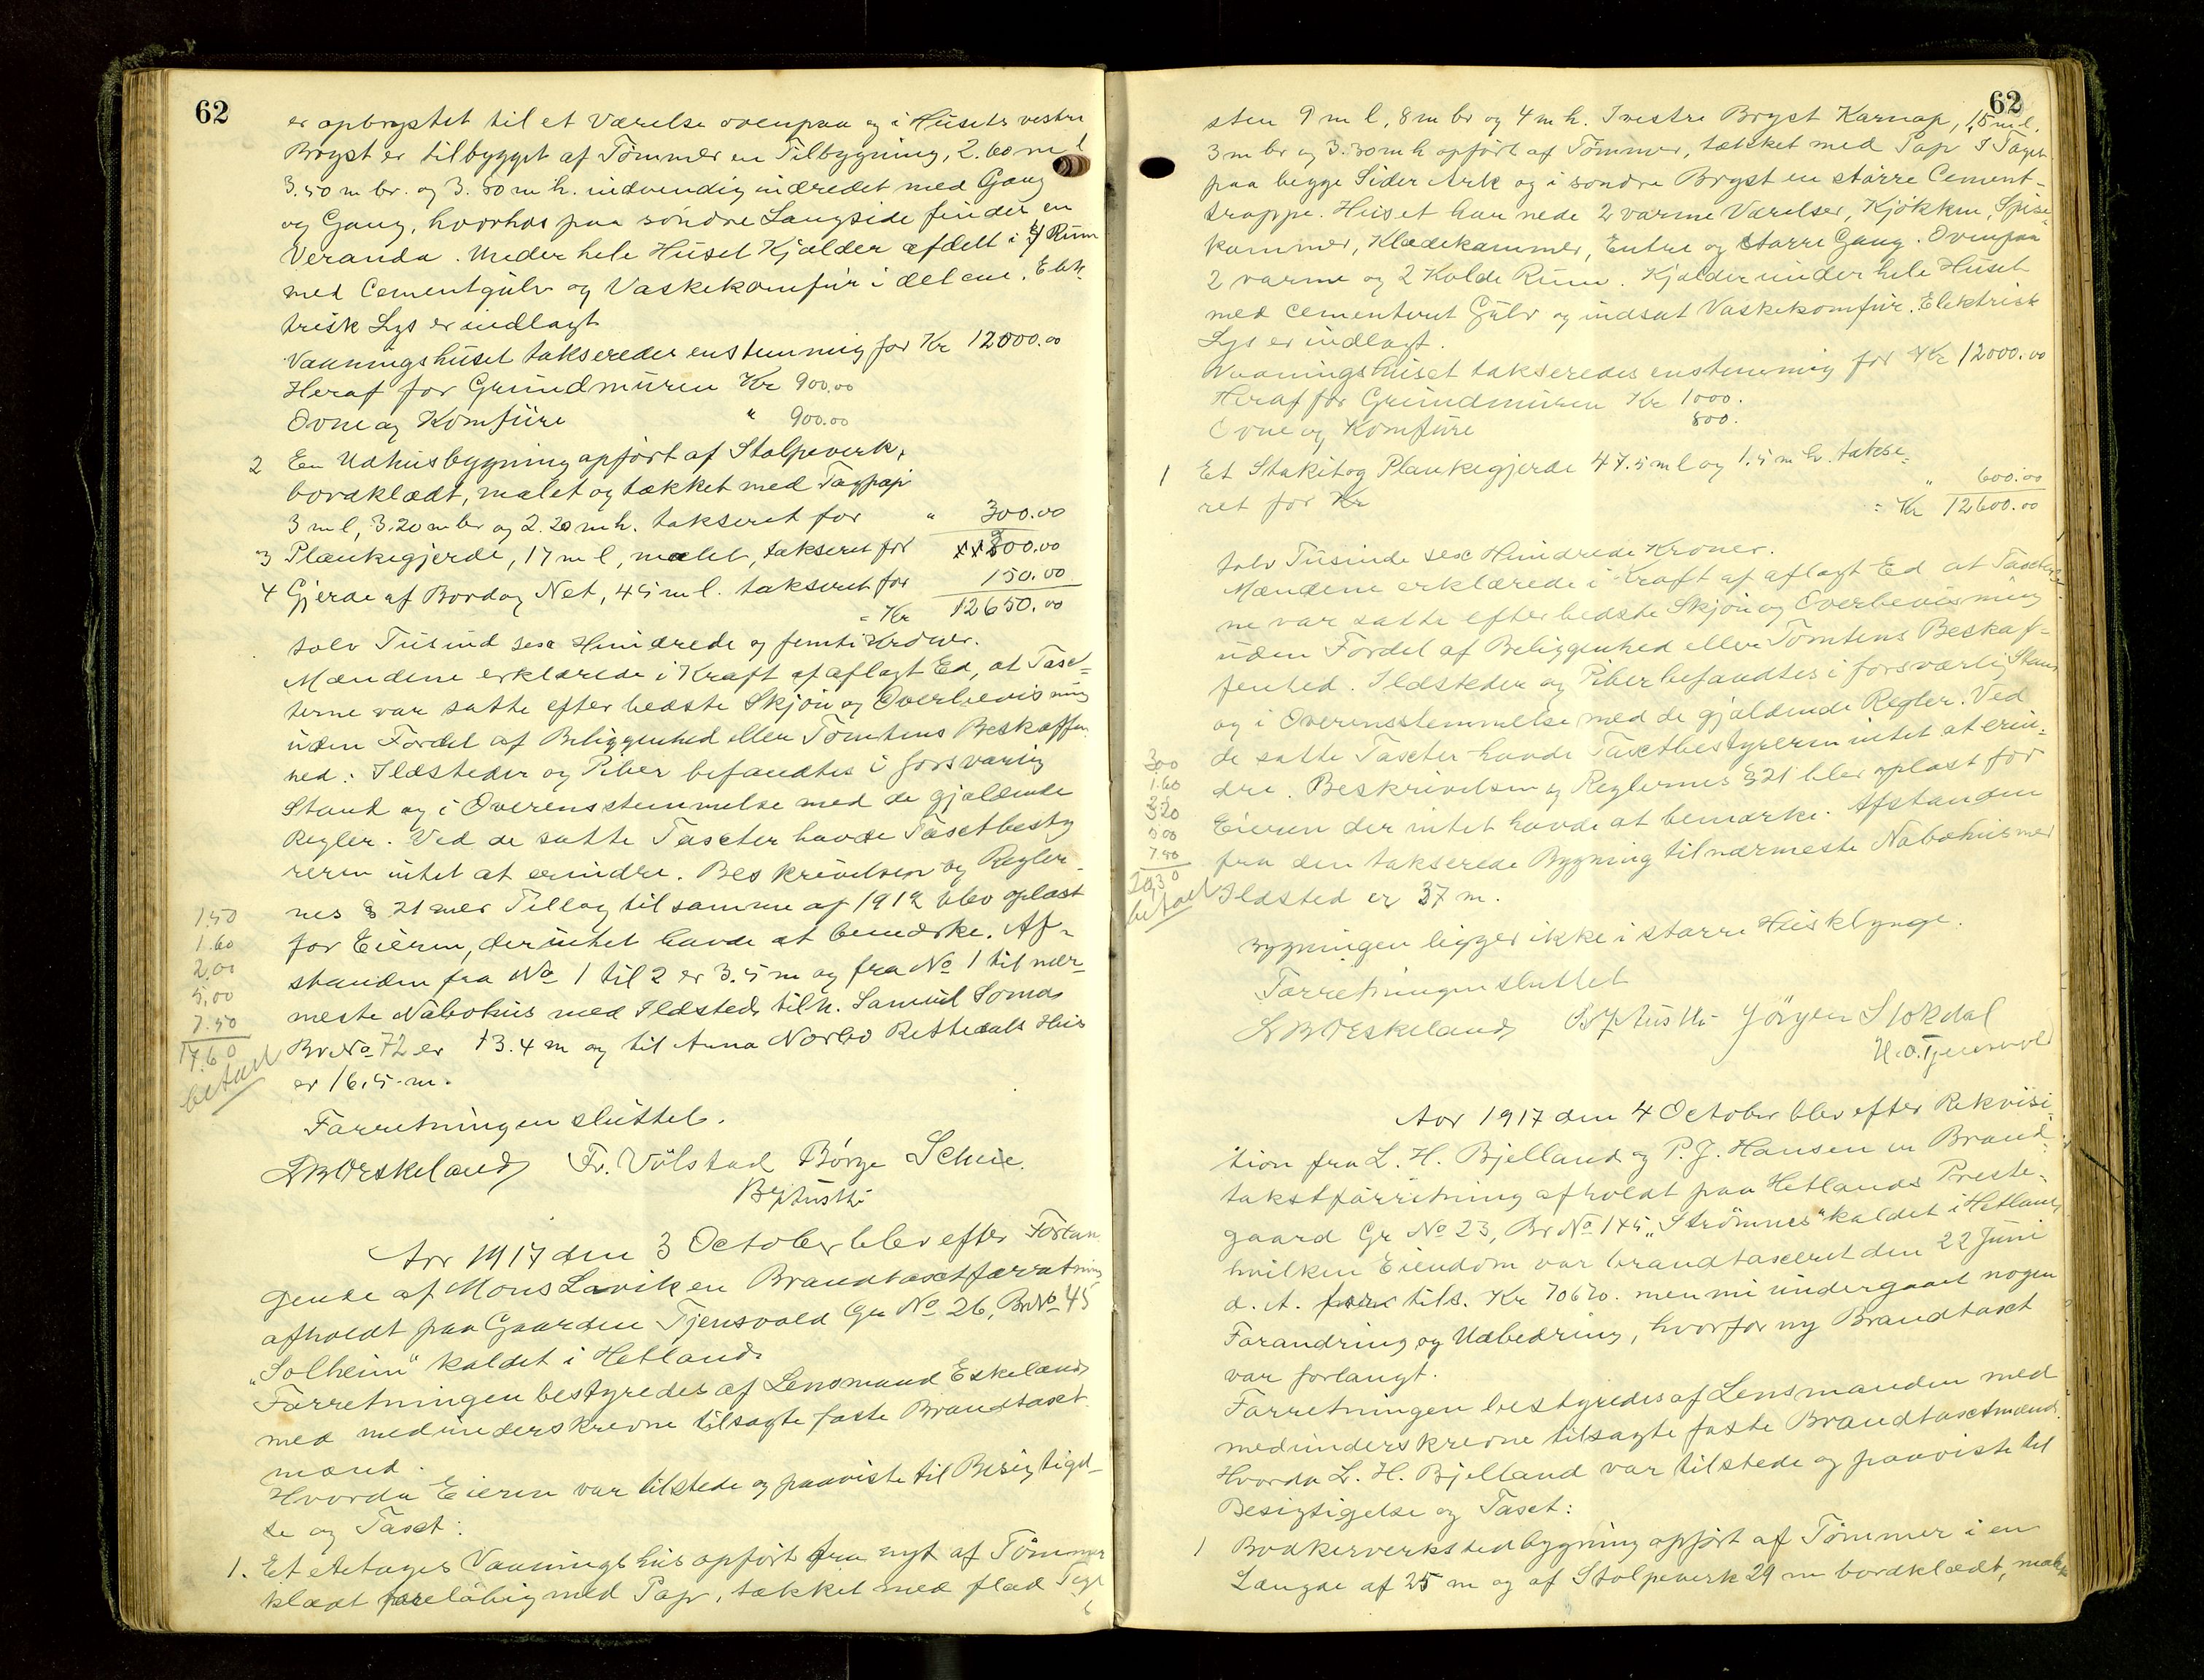 62
er opbrystet til et Værelse ovenpaa og i Husets vestre
Bryst er tilbygget af Tømmer en Tilbygning, 2.60 m l
3.50 m br. og 3.50 m h. indvendig indredet med Gang
og Gang, hvorhos paa søndre Langside findes en
Veranda. Under hele Huset Kjælder afdelt i 4 Rum
med Cementgulv og Vaskekomfur i det ene. Elek-
trisk Lys er indlagt
Vaaningshuset takseredes enstemmig for Kr 12000.00
Heraf for Grundmuren Kr 900.00
Ovne og Komfure " 900.00
2 En Udhusbygning opført af Stolpeverk,
bordklædt, malet og tækket med Tagpap
3 m l, 3.20 m br og 2.20 m h. takseret for " 300.00
3 Plankegjerde, 17 m l, malet, takseret for 200.00
4 Gjerde af Bord og Net, 45 m l. takseret for 150.00
= Kr 12650.00
tolv Tusind sex Hundrede og femti Kroner.
Mændene erklærede i Kraft af aflagt Ed, at Taxt-
terne var satte efter bedste Skjøn og Overbevisning
uden Fordel af Beliggenhed eller Tomtens Beskaffen
hed. Ildsteder og Piber befandtes i forsvarlig
Stand og i Overensstemmelse med de gjældende
Regler. Ved de satte Taxter havde Taxtbesty
reren intet at erindre. Beskrivelsen og Regler-
nes § 21 med Tillæg til samme af 1912 blev oplæst
for Eieren, der intet havde at bemærke. Af-
standen fra No 1 til 2 er 3.5 m og fra No 1 til nær-
meste Nabohus med Ildsted tilh. Samuel Sømds
Br No 72 er 13.4 m og til Anna Norbø Rettedals Hus
er 16.5 m.
1.50
1.60
2.00
5.00
7.50
17.60
betalt
Forretningen sluttet.
ABOeskeland Fr. Vølstad Børge Schie.
Aar 1917 den 3 October blev efter Forlan
gende af Mons Lavik en Brandtaxtforretning
afholdt paa Gaarden Tjensvold Gr No 26, Br No 45
"Solheim" kaldet i Hetland.
Forretningen bestyredes af Lensmand Eskeland
med medunderskrevne tilsagte faste Brandtaxt
mænd.
Hvorda Eieren var tilstede og paaviste til Besigtigel-
se og Taxt:
1. Et etetages Vaaningshus opført fra nyt af Tømmer
klædt foreløbig med Pap, tækket med flad Tegl
62
sten 9 m l, 8 m br og 4 m h. I vestre Bryst Karnap, 1.5 m l.
3 m br og 3.30 m h opført af Tømmer, tækket med Pap I Taget
paa begge Sider Ark og i søndre Bryst en større Cement-
trappe. Huset har nede 2 varme Værelser, Kjøkken, Spise-
kammer, Klædekammer, Entre og større Gang. Ovenpaa
2 varme og 2 Kolde Rum. Kjælder under hele Huset
med cementeret Gulv og indsat Vaskekomfur. Elektrisk
Lys er indlagt.
Vaaningshuset takseredes enstemmig for Kr 12000.00
Heraf for Grundmuren Kr 1000.
Ovne og Komfure 800.
1 Et Stakit og Plankegjerde 47.5 m l og 1.5 m h. takse-
ret for Kr " 600.00
= Kr 12600.00
tolv Tusinde sex Hundrede Kroner.
Mændene erklærede i Kraft af aflagt Ed at Taxter-
ne var satte efter bedste Skjøn og Overbevisning
uden Fordel af Beliggenhed eller Tomtens Beskaf-
fenhed. Ildsteder og Piber befandtes i forsvarlig Stand
og i Overensstemmelse med de gjældende Regler. Ved
de satte Taxter havde Taxtbestyreren intet at erin-
dre. Beskrivelsen og Reglernes § 21 blev oplæst for
Eieren der intet havde at bemærke. Afstanden
fra den takserede Bygning til nærmeste Nabohus med
Ildsted er 37 m.
300
1.60
3.20
5.00
7.50
20.30
betalt
Bygningen ligger ikke i større Husklynge.
Forretningen sluttet
ABOeskeland Jörgen Stokdal
H. O. Tjensvold
Aar 1917 den 4 October blev efter Rekvisi-
tion fra L. H. Bjelland og P. J. Hansen en Brand-
takstforretning afholdt paa Hetlands Preste-
gaard Gr No 23, Br No 145 "Strømnes" kaldet i Hetland
hvilken Eiendom var brandtaxeret den 22 Juni
d. A. tils. Kr 70670. men nu undergaaet nogen
Forandring og Udbedring, hvorfor ny Brandtaxt
var forlangt.
Forretningen bestyredes af Lensmanden med
medunderskrevne tilsagte faste Brandtaxtmænd.
Hvorda L. H. Bjelland var tilstede og paaviste til
Besigtigelse og Taxt:
1 Bødkerverkstedbygning opført af Tømmer i en
Længde af 25 m og af Stolpeverk 29 m bordklædt, malet